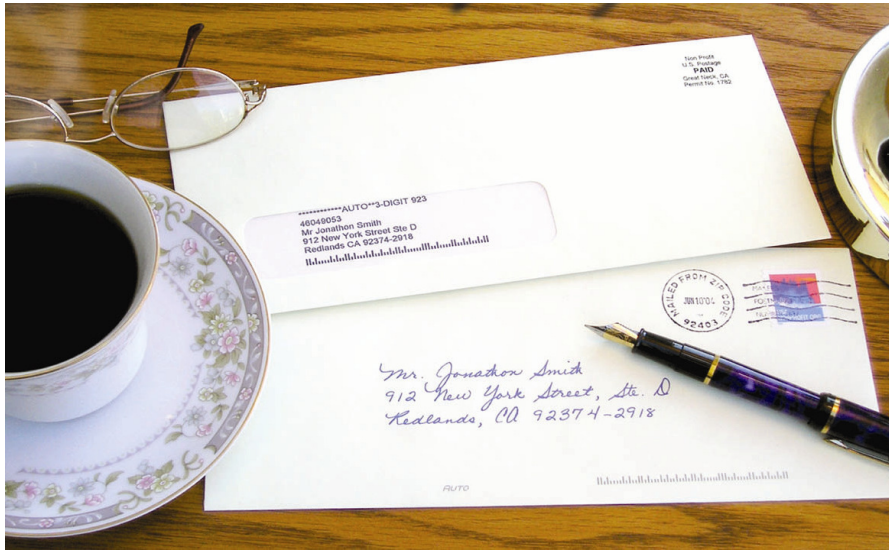 Non Profit
U.S. Postage
PAID
Great Neck, CA
Permit No. 1762
************AUTO**3-DIGIT 923
46049053
Mr Jonathon Smith
912 New York Street Ste D
Redlands CA 92374-2918
MAILED FROM ZIP CODE
JUN 10'04
92403
Mr. Jonathon Smith
912 New York Street, Ste. D
Redlands, CA 92374-2918
AUTO